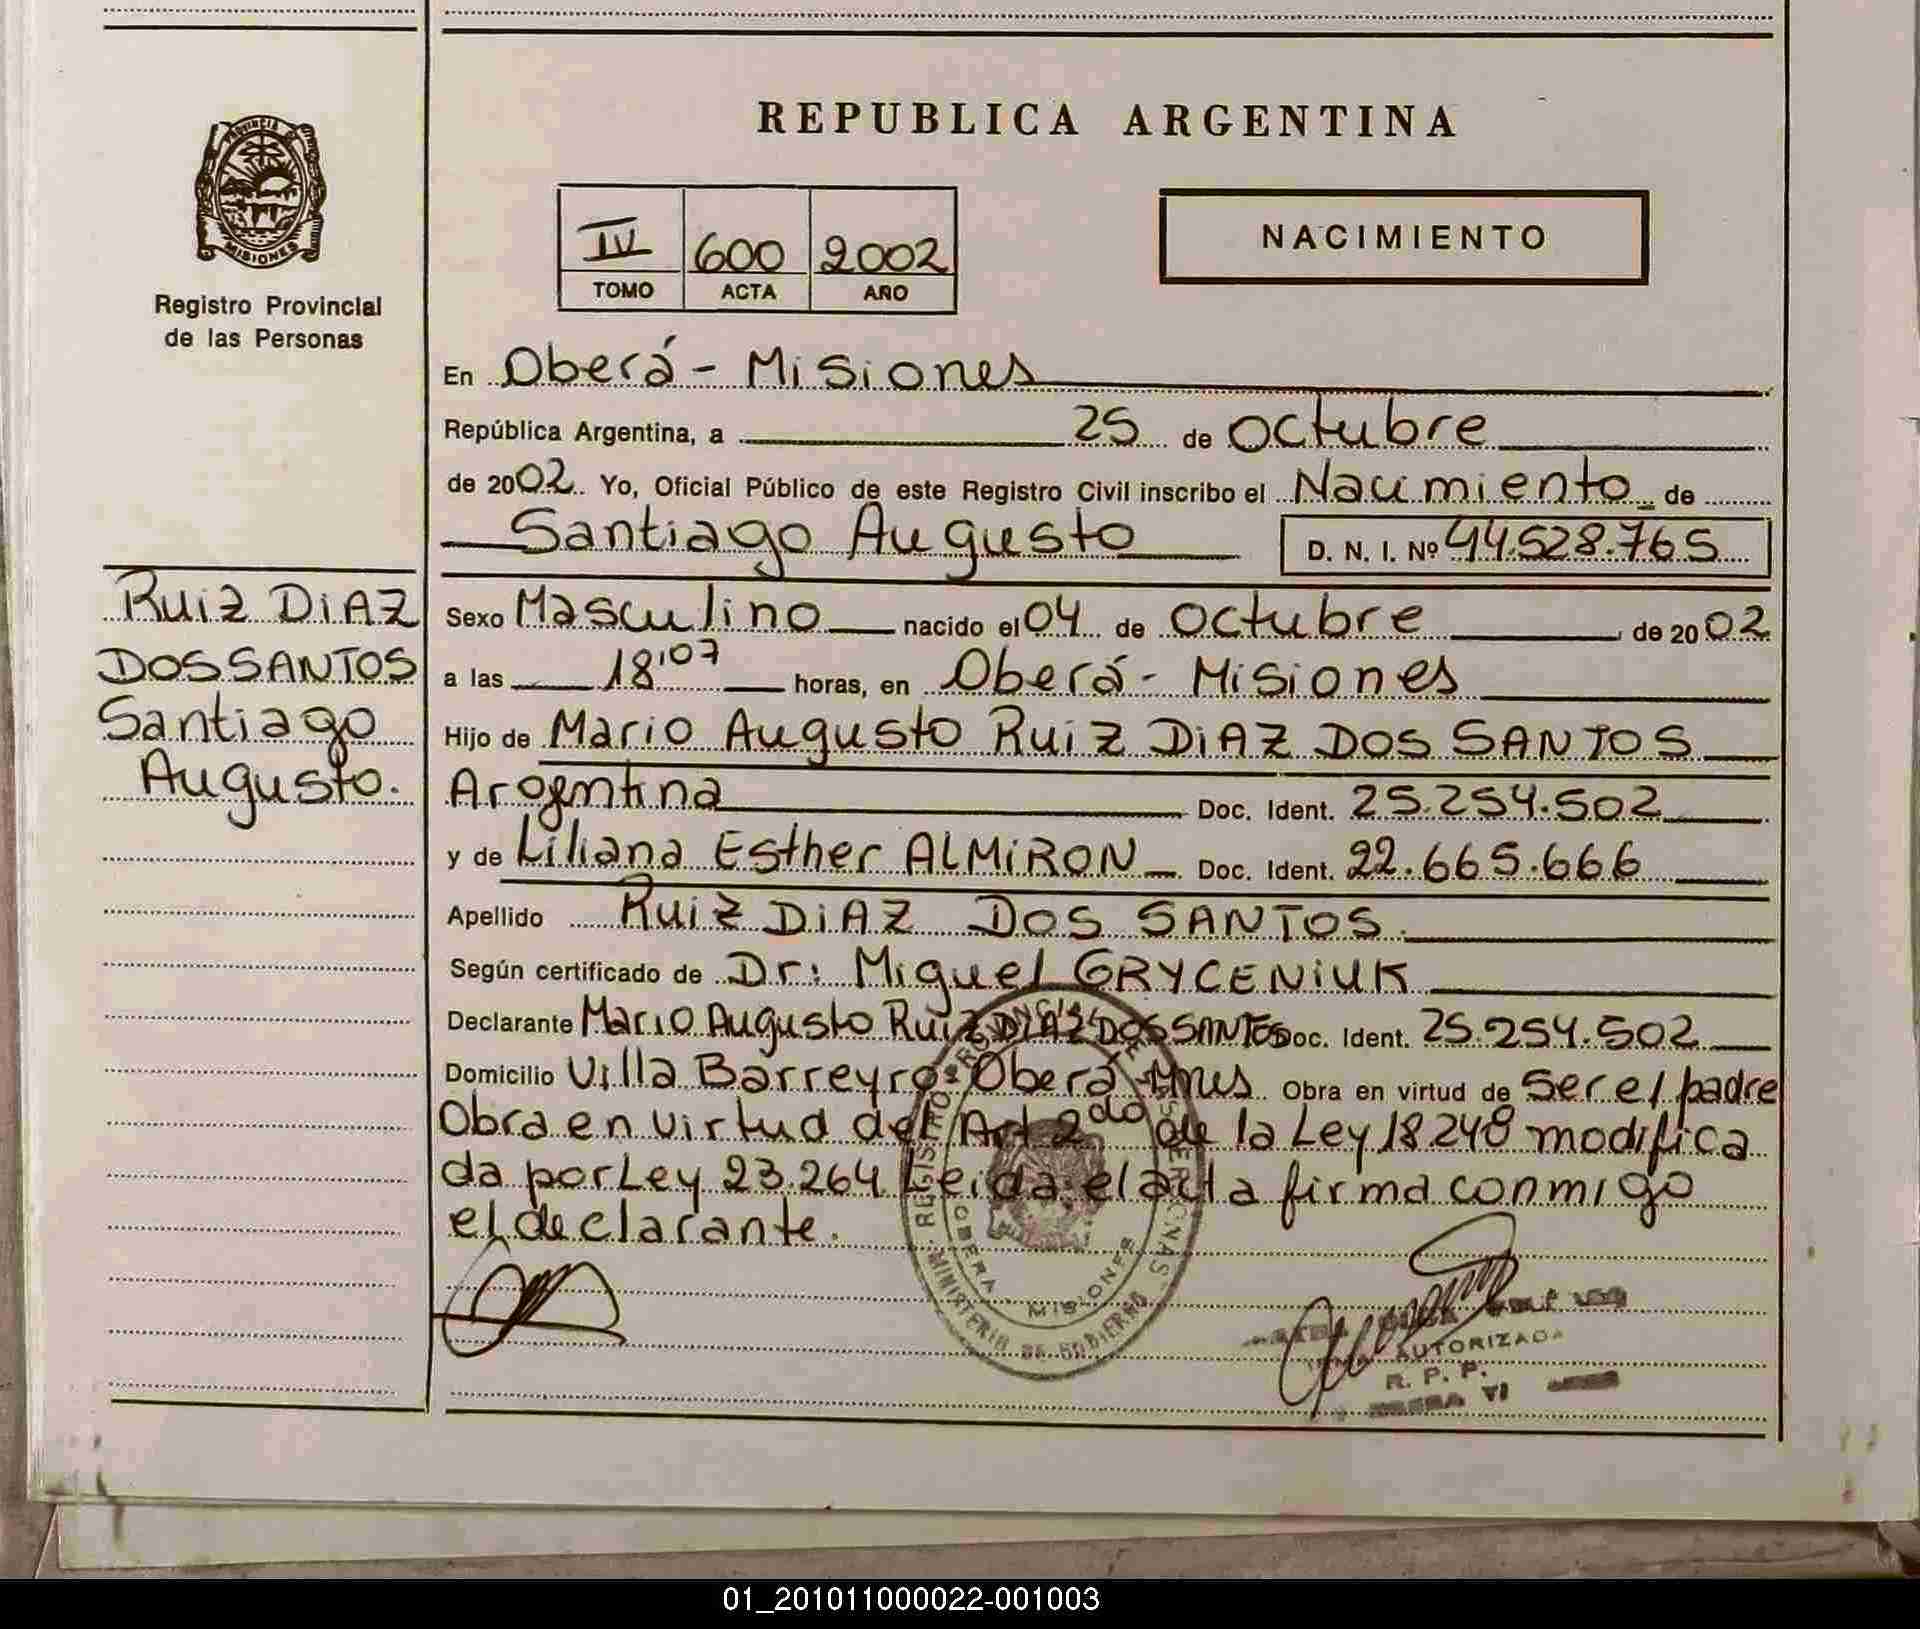 REPUBLICA ARGENTINA
PROVINCIA DE
MISIONES
Registro Provincial
de las Personas
IV 600 2002
TOMO ACTA AÑO
NACIMIENTO
En Oberá - Misiones
República Argentina, a 25 de Octubre
de 2002. Yo, Oficial Público de este Registro Civil inscribo el Nacimiento de
Santiago Augusto D. N. I. Nº 44.528.765
RUIZ DIAZ
DOS SANTOS
Santiago
Augusto.
Sexo Masculino nacido el 04 de Octubre de 2002
a las 18'07 horas, en Oberá - Misiones
Hijo de Mario Augusto RUIZ DIAZ DOS SANTOS
Argentina Doc. Ident. 25.254.502
y de Liliana Esther ALMIRON Doc. Ident. 22.665.666
Apellido RUIZ DIAZ DOS SANTOS.
Según certificado de Dr: Miguel GRYCENIUK
Declarante Mario Augusto RUIZ DIAZ DOS SANTOS Doc. Ident. 25.254.502
Domicilio Villa Barreyro - Oberá - Mnes Obra en virtud de Ser el padre
Obra en virtud del Art 2do de la Ley 18248 modifica
da por Ley 23.264 Leida el acta firma conmigo
el declarante.
REGISTRO PROVINCIAL DE LAS PERSONAS
OBERA - MISIONES
MINISTERIO DE GOBIERNO
AUTORIZADA
R. P. P.
01_201011000022-001003